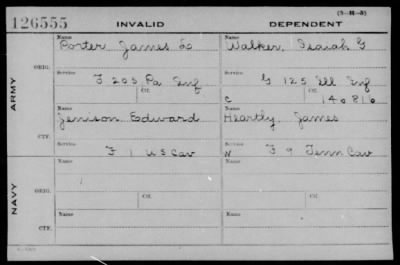 (3-M-5)
126555 INVALID DEPENDENT
Name Name
Porter, James Walker, Isaiah G
ORIG. Service Service
F 205 Pa Inf G 125 Ill Inf
Ctf. Ctf.
C 140816
ARMY
Name Name
Jenison Edward Heartly, James
Service Service
CTF. F 1 U S Cav W F 9 Tenn Cav
Name Name
ORIG. Service Service
Ctf. Ctf.
NAVY
Name Name
CTF. Service Service